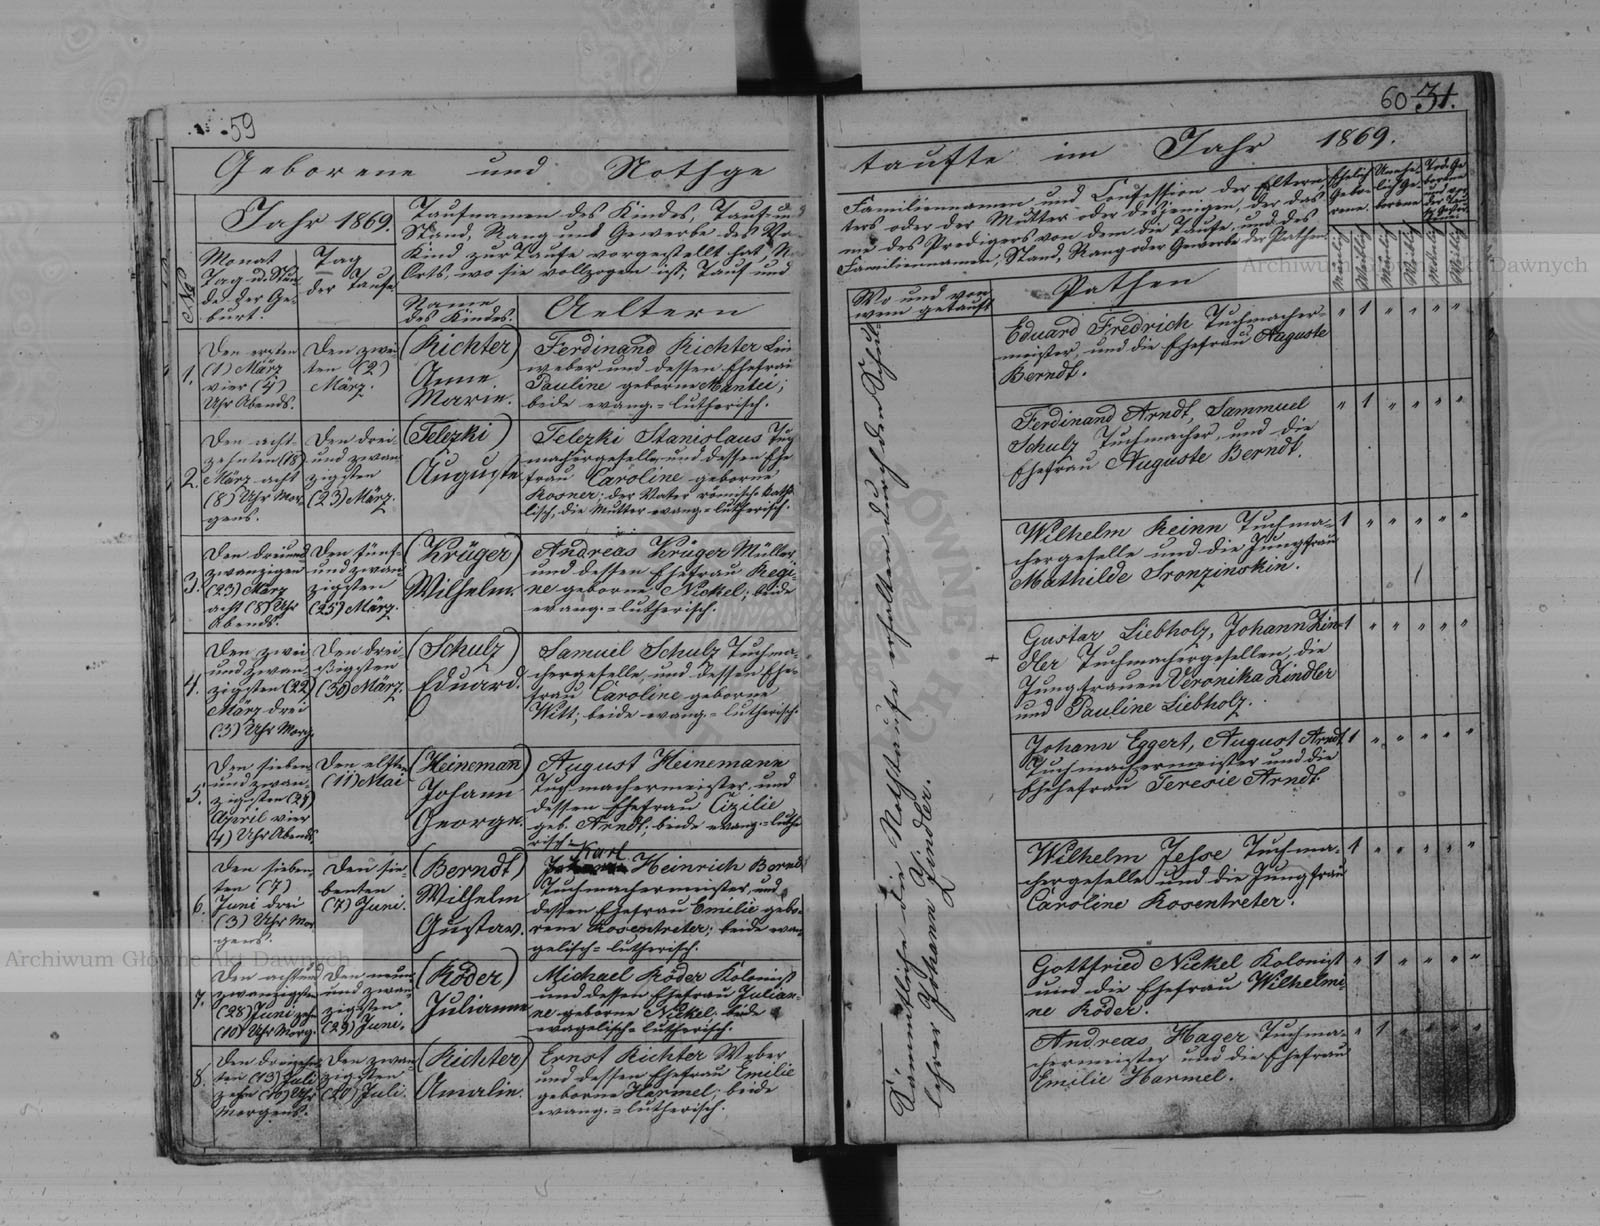 59
Geborene und Nothge
Jahr 1869.
Taufnamen des Kindes, Tauf und
Stand, Rang und Gewerbe des Va-
Kind zur Taufe vorgestellt hat, Na
Orts, wo sie vollzogen ist, Tauf und
No
Monat
Tag u. Stun-
de der Ge-
burt.
Tag
der Taufe
Name
des Kindes.
Aeltern
1.
Den ersten
(1) März
vier (4)
Uhr Abends.
Den zwei-
ten (2)
März.
(Richter)
Anne.
Marie.
Ferdinand Richter Lein
weber und dessen Ehefrau
Pauline geborne Mantei;
beide evang.=lutherisch.
2.
Den acht-
zehnten (18)
März acht
(8) Uhr Mor-
gens.
Den drei-
und zwan-
zigsten
(23) März.
(Telezki)
Auguste.
Telezki Stanislaus Tuch
machergeselle und dessen Ehe
frau Caroline geborne
Rosner; der Vater römisch=katho
lisch, die Mutter evang=lutherisch.
3.
Den dreiund
zwanzigen
(23) März
acht (8) Uhr
Abends.
Den fünf-
und zwan-
zigsten
(25) März.
(Krüger)
Wilhelm.
Andreas Krüger Müller
und dessen Ehefrau Regi-
ne geborne Nickel; beide
evang.=lutherisch.
4.
Den zwei
und zwan-
zigsten (22)
März drei
(3) Uhr Morg.
Den drei-
ßigsten
(30) März.
(Schulz)
Eduard.
Samuel Schulz Tuchma-
chergeselle, und dessen Ehe-
frau Caroline geborne
Witt; beide evang.=lutherisch.
5.
Den sieben
und zwan-
zigsten (27)
April vier
(4) Uhr Abends
Den elften
(11) Mai
(Heineman)
Johann
George.
August Heinemann
Tuchmachermeister, und
dessen Ehefrau Cizilie
geb. Arndt; beide evang.=luthe
risch=
6.
Den sieben-
ten (7)
Juni drei
(3) Uhr Mor
gens.
Den sie
benten
(7) Juni.
(Berndt)
Wilhelm
Gustaw.
Karl
Heinrich Berndt
Tuchmachermeister, und
dessen Ehefrau Emilie gebo-
rene Rosentreter; beide evan
gelisch=lutherisch.
7.
Den achtund
zwanzigsten
(28) Juni zehn
(10) Uhr Morg.
Den neun
und zwan-
zigsten
(29) Juni.
(Röder)
Julianne
Michael Röder Kolonist
und dessen Ehefrau Julian-
ne geborne Nickel; beide
evagelisch=lutherisch.
8.
Den dreizehn-
ten (13) Juli
zehn (10) Uhr
Morgens.
Den zwan-
zigsten
(20) Juli.
(Richter)
Amalin.
Ernst Richter Weber
und dessen Ehefrau Emilie
geborne Harmel; beide
evang.=lutherisch.
60 31.
taufte im Jahr 1869.
Familiennamen und Confession der Eltern,
ters oder der Mutter oder desjenigen, der das
me des Predigers von dem die Taufe, und des
Familiennamen, Stand, Rang oder Gewerbe der Pathen.
Ehelich
Gebo-
rene.
Unehe-
lich Ge-
borene
Männlich
Weiblich
Männlich
Weiblich
Männlich
Weiblich
Wo und von
wem getauft
Pathen
Sämmtliche die Nothtaufe erhalten durch den Schul-
lehrer Johann Zindler.
Eduard Fredrich Tuchmacher-
meister, und die Ehefrau Auguste
Berndt.
" 1 " " " "
Ferdinand Arndt, Sammuel
Schulz Tuchmacher, und die
Ehefrau Auguste Berndt.
" 1 " " " "
Wilhelm Reinn Tuchma-
chergeselle und die Jungfrau
Mathilde Sronzinskin.
1 " " " " "
Gustav Liebholz, Johann Zin-
dler Tuchmachergesellen, die
Jungfrauen Veronika Zindler
und Pauline Liebholz.
1 " " " " "
Johann Eggert, August Arndt
Tuchmachermeister und die
Ehehefrau Teresie Arndt
1 " " " " "
Wilhelm Jesse Tuchma-
chergeselle und die Jungfrau
Caroline Rosentreter.
1 " " " " "
Gottfried Nickel Kolonist
und die Ehefrau Wilhelmi-
ne Röder.
" 1 " " " "
Andreas Hager Tuchma-
chermeister und die Ehefrau
Emilie Harmel.
" 1 " " " "
Archiwum Główne Akt Dawnych